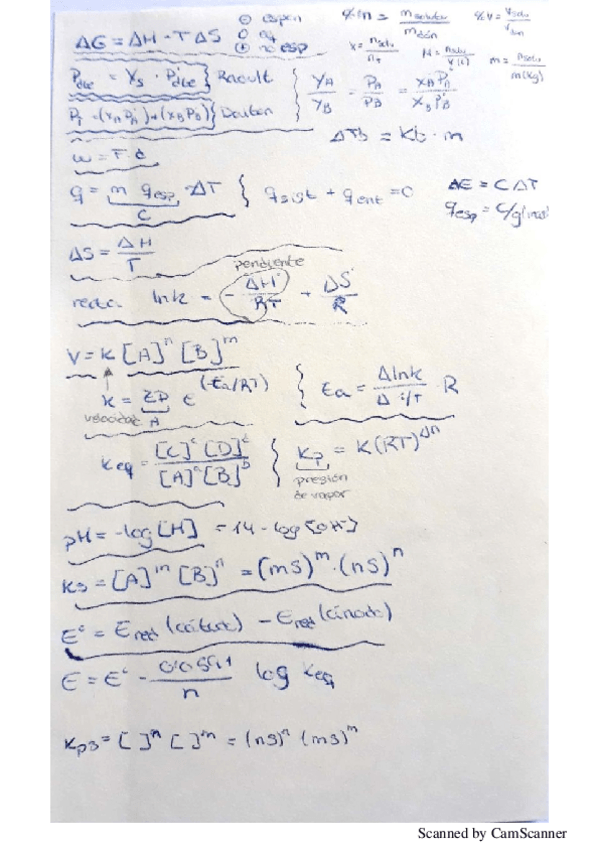 ΔG = ΔH - TΔS
⊖ espon
⓪ eq
⊕ no esp
%m = m soluto / m dión
%v = v solu / v dión
x = n solu / n T
M = n solu / V(l)
m = n solu / m(kg)
P dce = Xs · P° dce } Raoult { YA / YB = PA / PB = XA P°A / XB P°B
Pt = (XA P°A) + (XB P°B) } Dalton
ΔTb = Kb · m
w = F · d
q = m qesp · ΔT { q sist + q ent = 0
C
ΔE = C ΔT
qesp = C/g(mol)
ΔS = ΔH / T
pendiente
recta ln k = - ΔH° / RT + ΔS° / R
V = K [A]^n [B]^m
k = ZP e^(-Ea/RT) { Ea = Δlnk / Δ 1/T · R
velocidad A
Keq = [C]^c [D]^d / [A]^a [B]^b { Kp = K(RT)^Δn
presión
de vapor
pH = -log [H] = 14 - log [OH]
Ks = [A]^m [B]^n = (mS)^m · (nS)^n
E° = E red (cátodo) - E red (ánodo)
E = E° - 0'0591 / n log Keq
Kps = [ ]^n [ ]^m = (nS)^n (mS)^m
Scanned by CamScanner